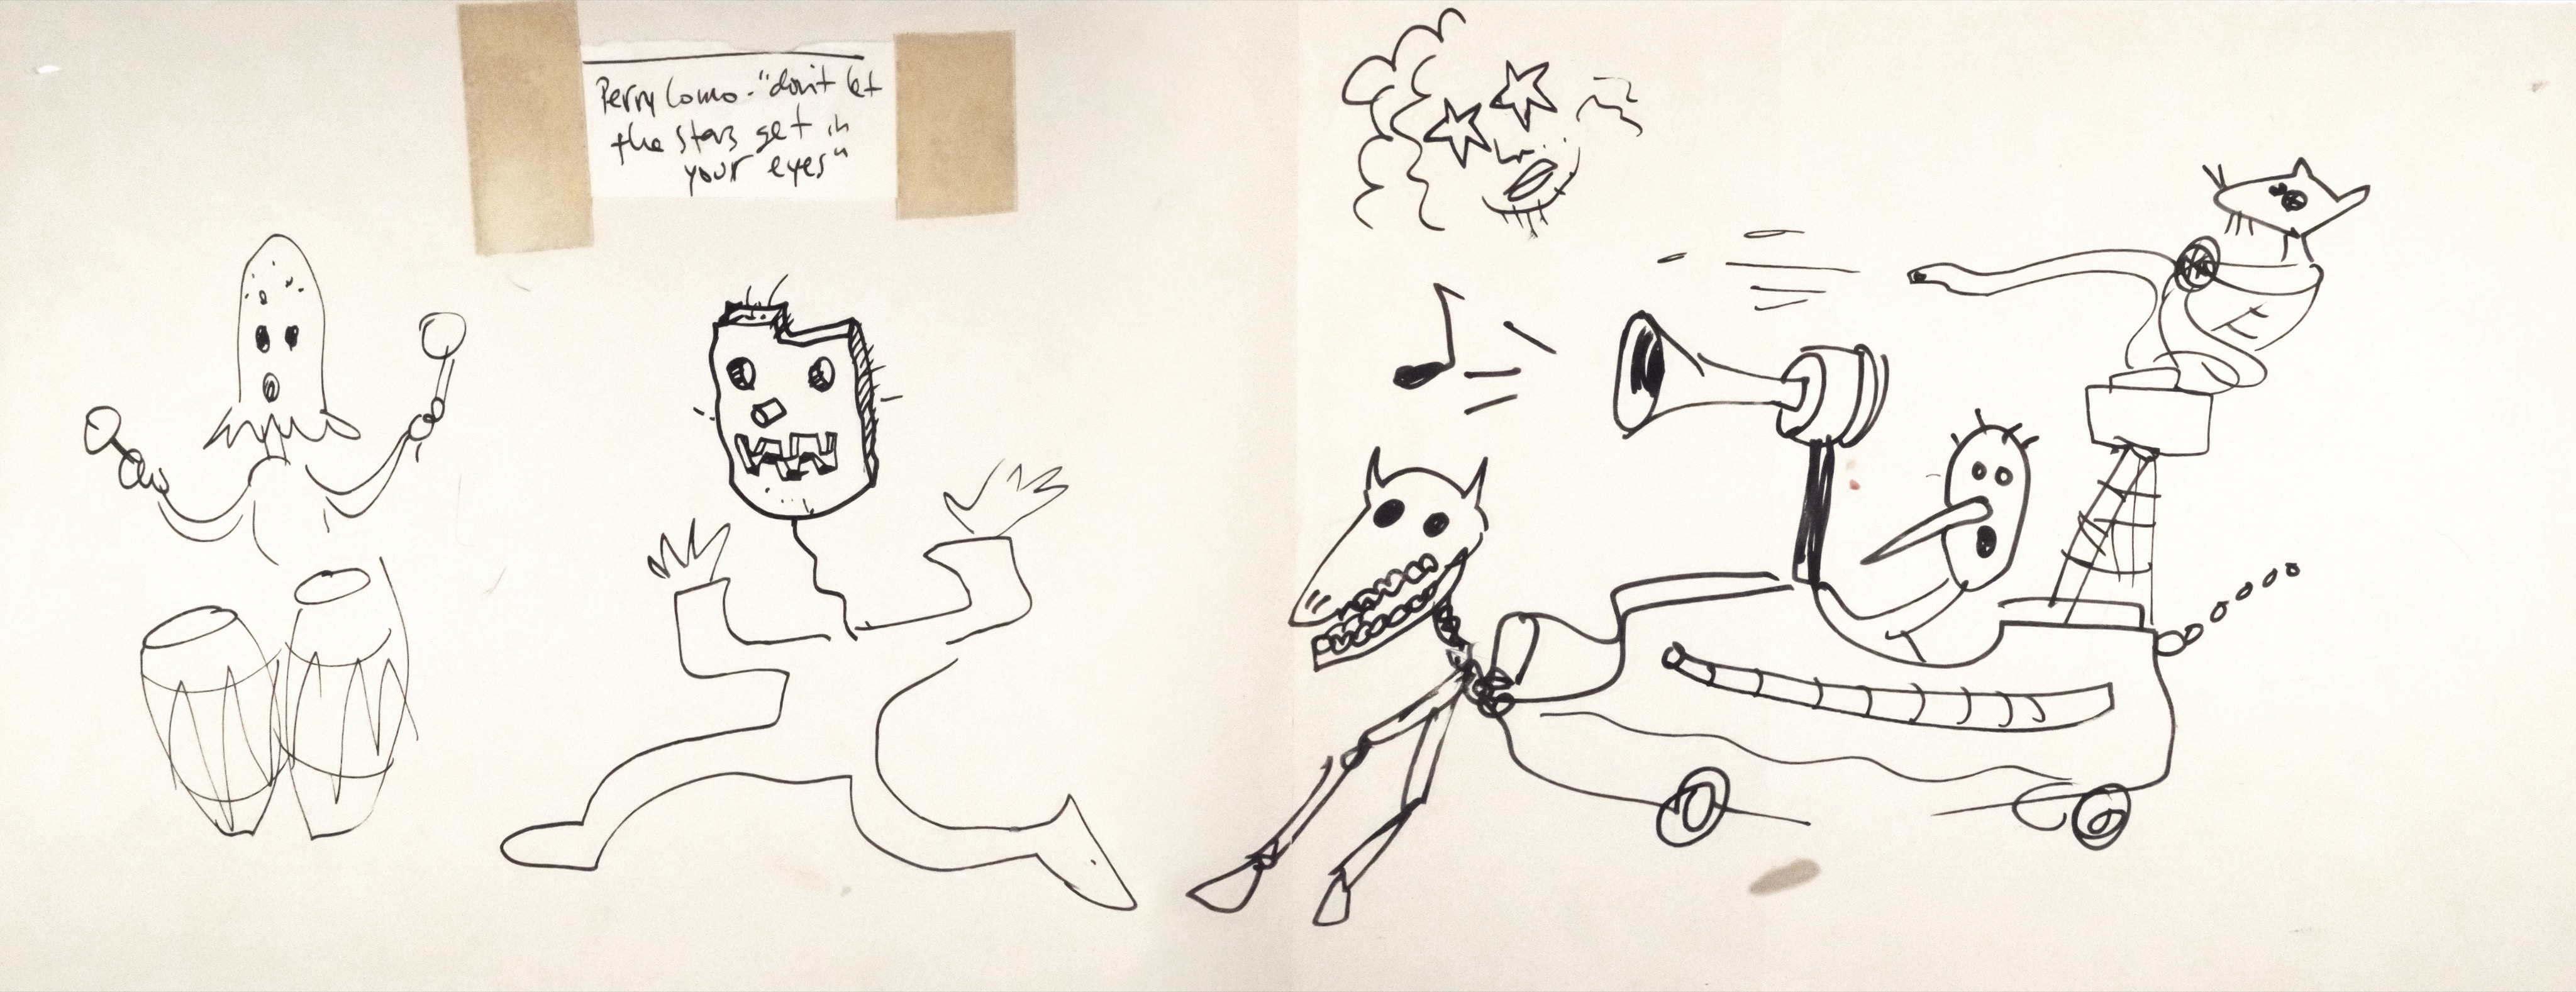 Perry Como - "don't let
the stars get in
your eyes"